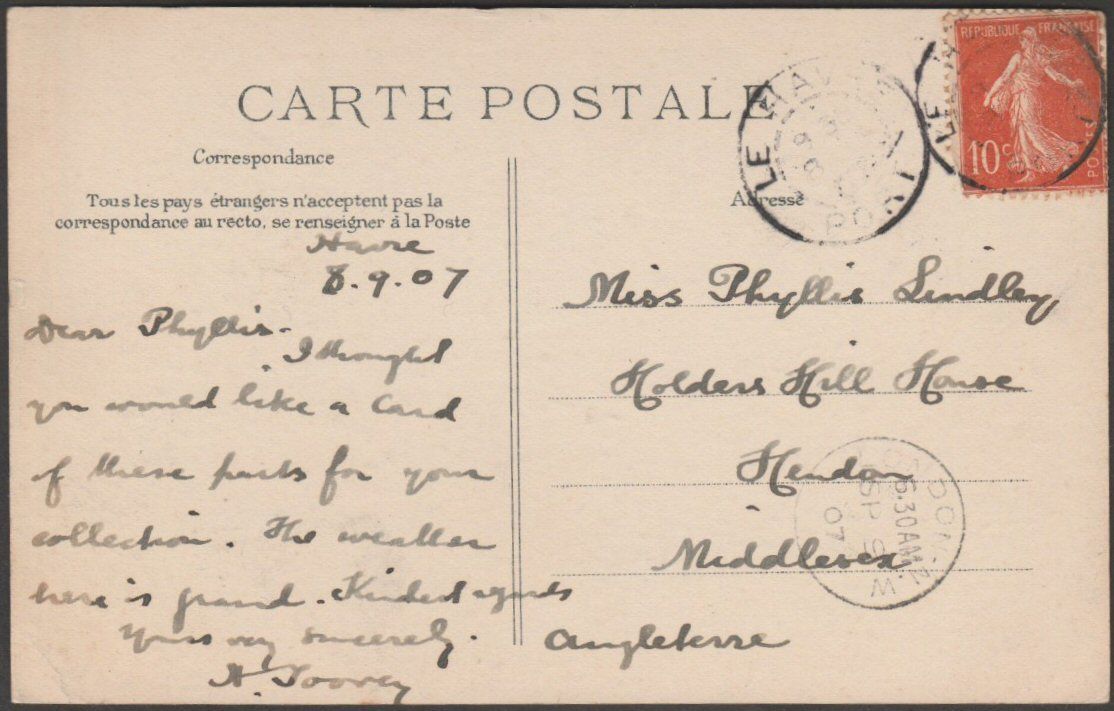 CARTE POSTALE
Correspondance
Tous les pays étrangers n'acceptent pas la
correspondance au recto, se renseigner à la Poste
Havre
8.9.07
Dear Phyllis-
I thought
you would like a card
of these parts for your
collection. The weather
here is grand. Kindest regards
Yours very sincerely.
A. Toovey
Adresse
Miss Phyllis Lindley,
Holders Hill House
Hendon
Middlesex
Angleterre
REPUBLIQUE FRANÇAISE
10c
POSTES
LE HAVRE
LE
LONDON. N.W
6.30AM
SP 9
07